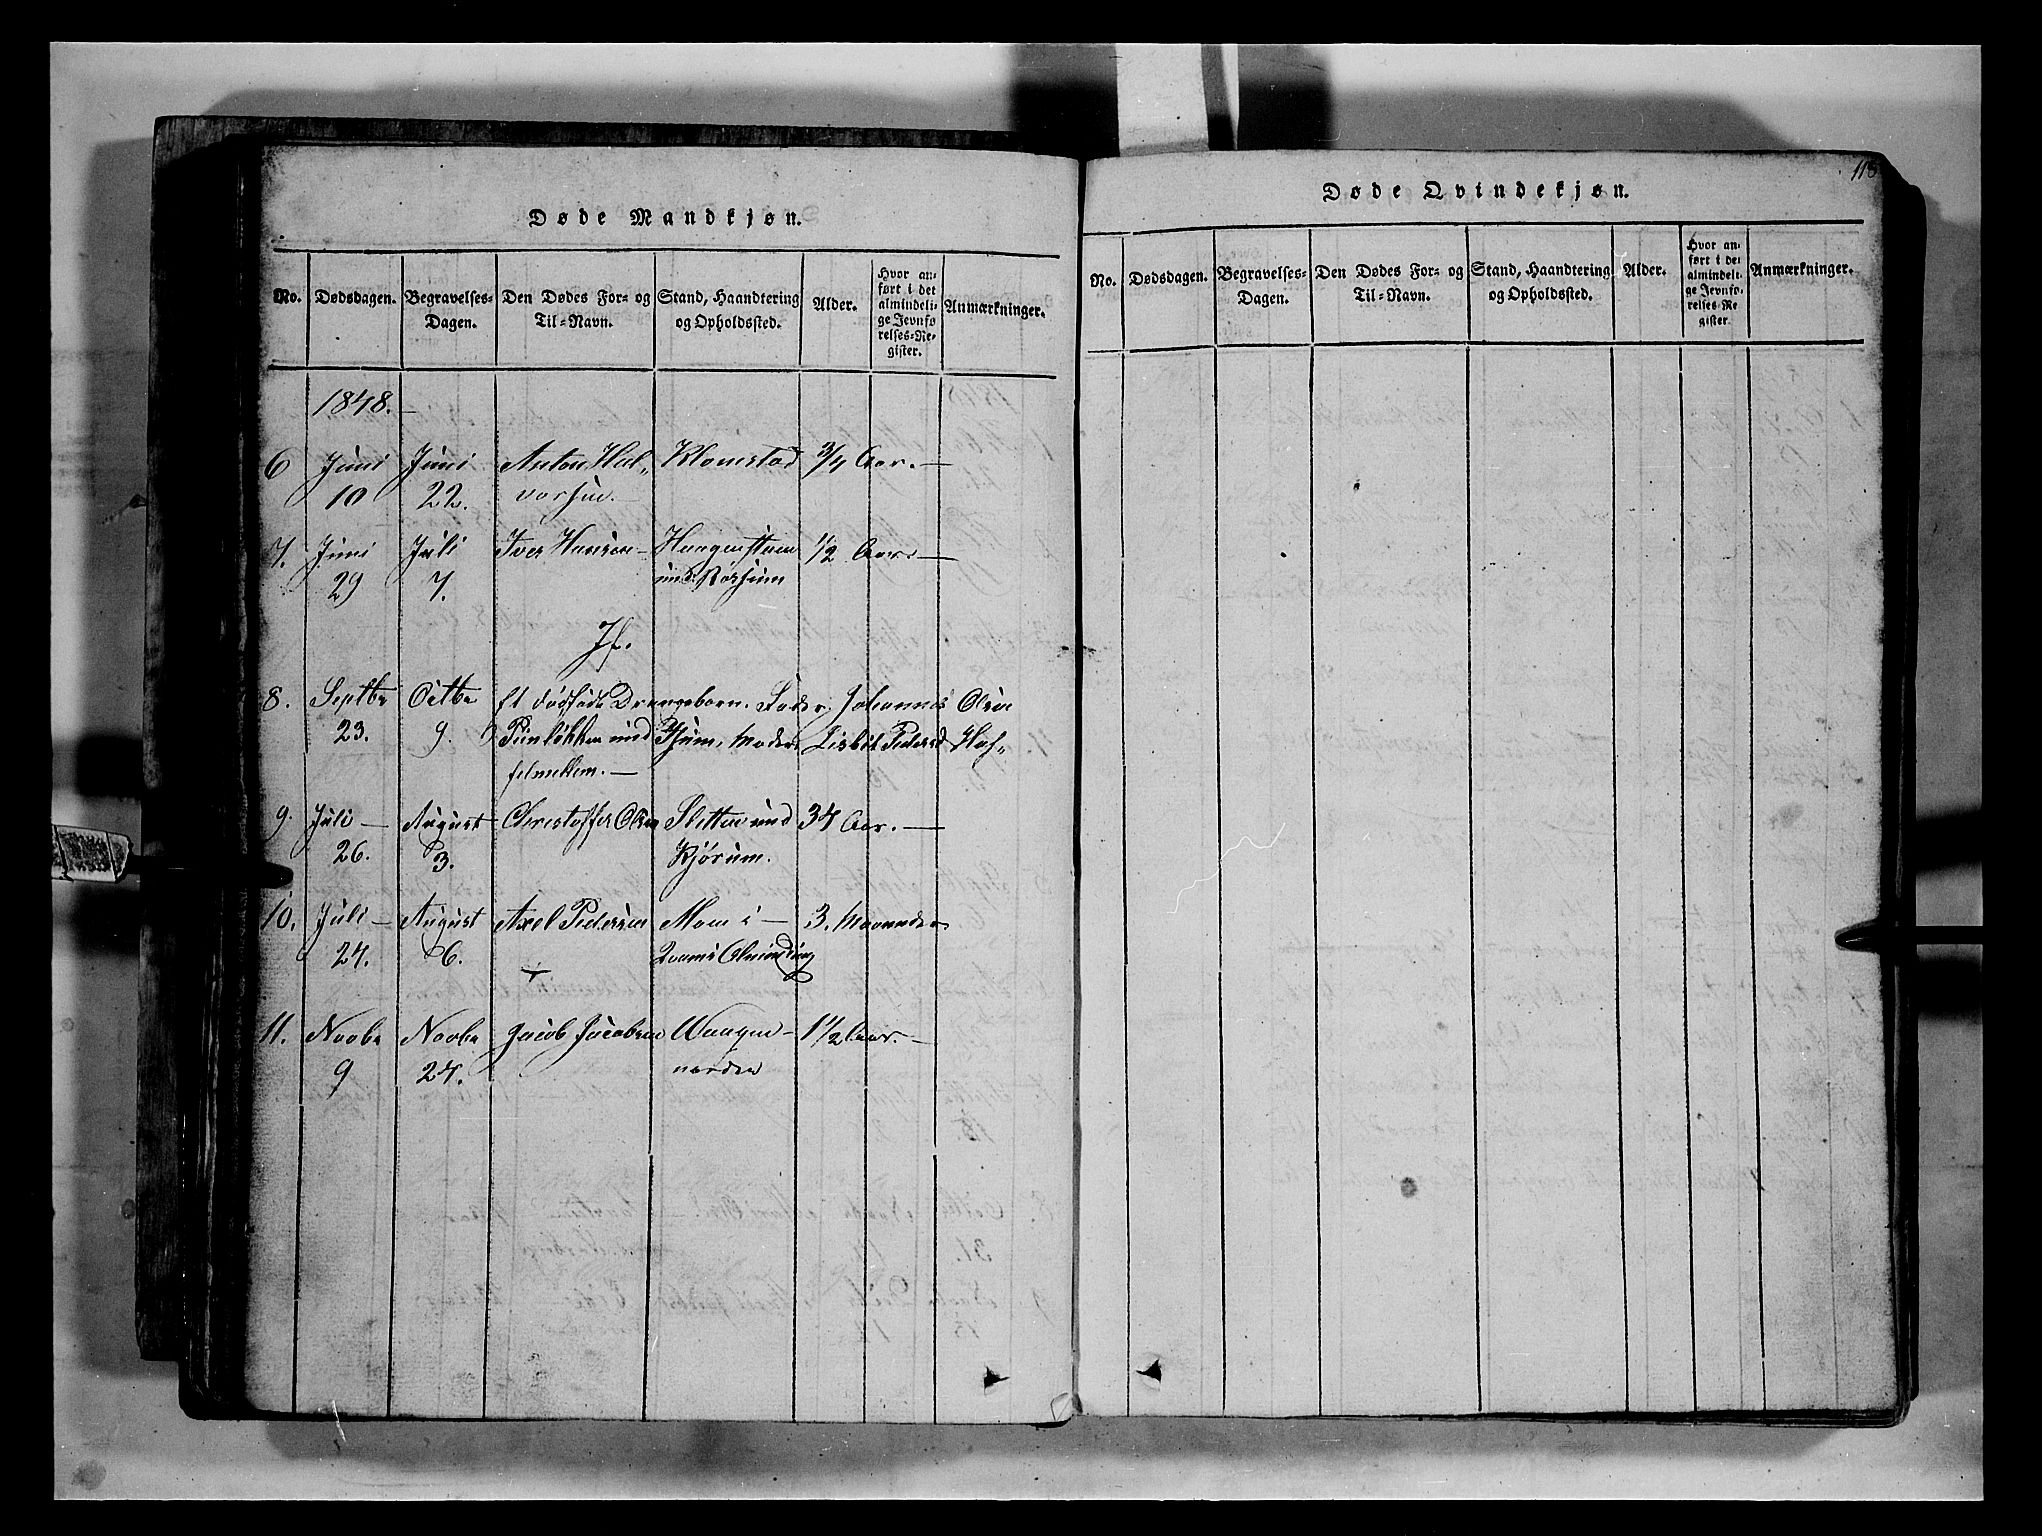 Døde Mandkjøn.
No. Dødsdagen. Begravelses-Dagen. Den Dødes For- og Til-Navn. Stand, Haandtering og Opholdssted. Alder. Hvor anført i det almindelige Jevnførelses-Register. Anmærkninger.
1848.
6 Juni Juni Anton Hal- Klomstad 3/4 Aar.
10 22. vorsen.
7. Juni Juli Iver Hansen Haugenstuen 1/2 Aar.
29 7. und. Rorsum
If.
8. Septbr Octbr Et dødfødt Drengebarn. Fader: Johannes Olsen
23. 9. und Moder Lisbet Pedersd
9. Juli August Christoffer Olsen Sletten und 34 Aar.
26. 3. Kjørum.
10. Juli August Axel Pedersen Moen i 3. Maaneder
24. 6. Qvams Alminding
11. Novbr Novbr Jacob Jacobsen Waagen 1 1/2 Aar.
9 24. norden
118
Døde Qvindekjøn.
No. Dødsdagen. Begravelses-Dagen. Den Dødes For- og Til-Navn. Stand, Haandtering og Opholdssted. Alder. Hvor anført i det almindelige Jevnførelses-Register. Anmærkninger.